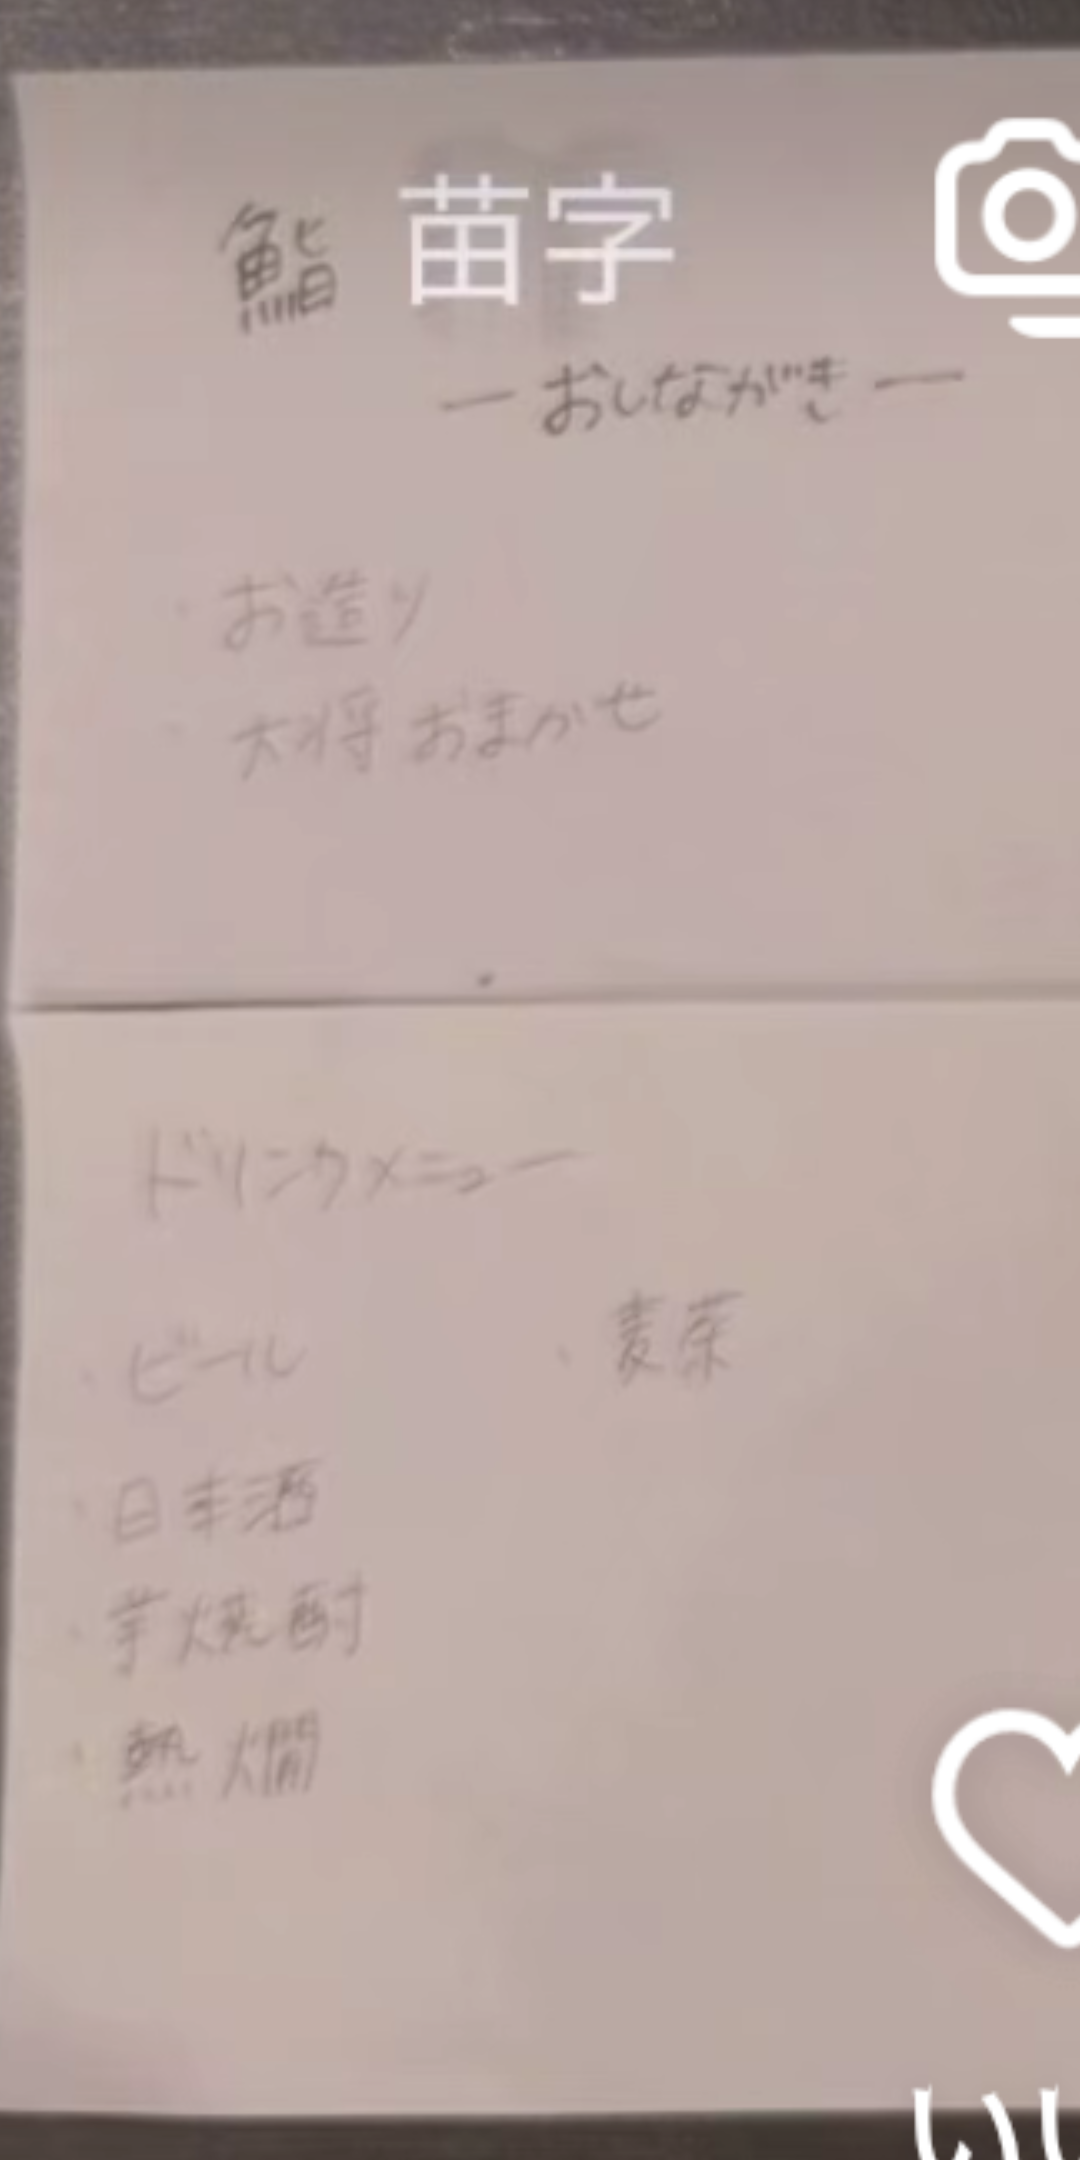 鮨 苗字
ー おしながき ー
・お造り
・大将 おまかせ
ドリンクメニュー
・ビール
・麦茶
・日本酒
・芋焼酎
・熱燗
いい